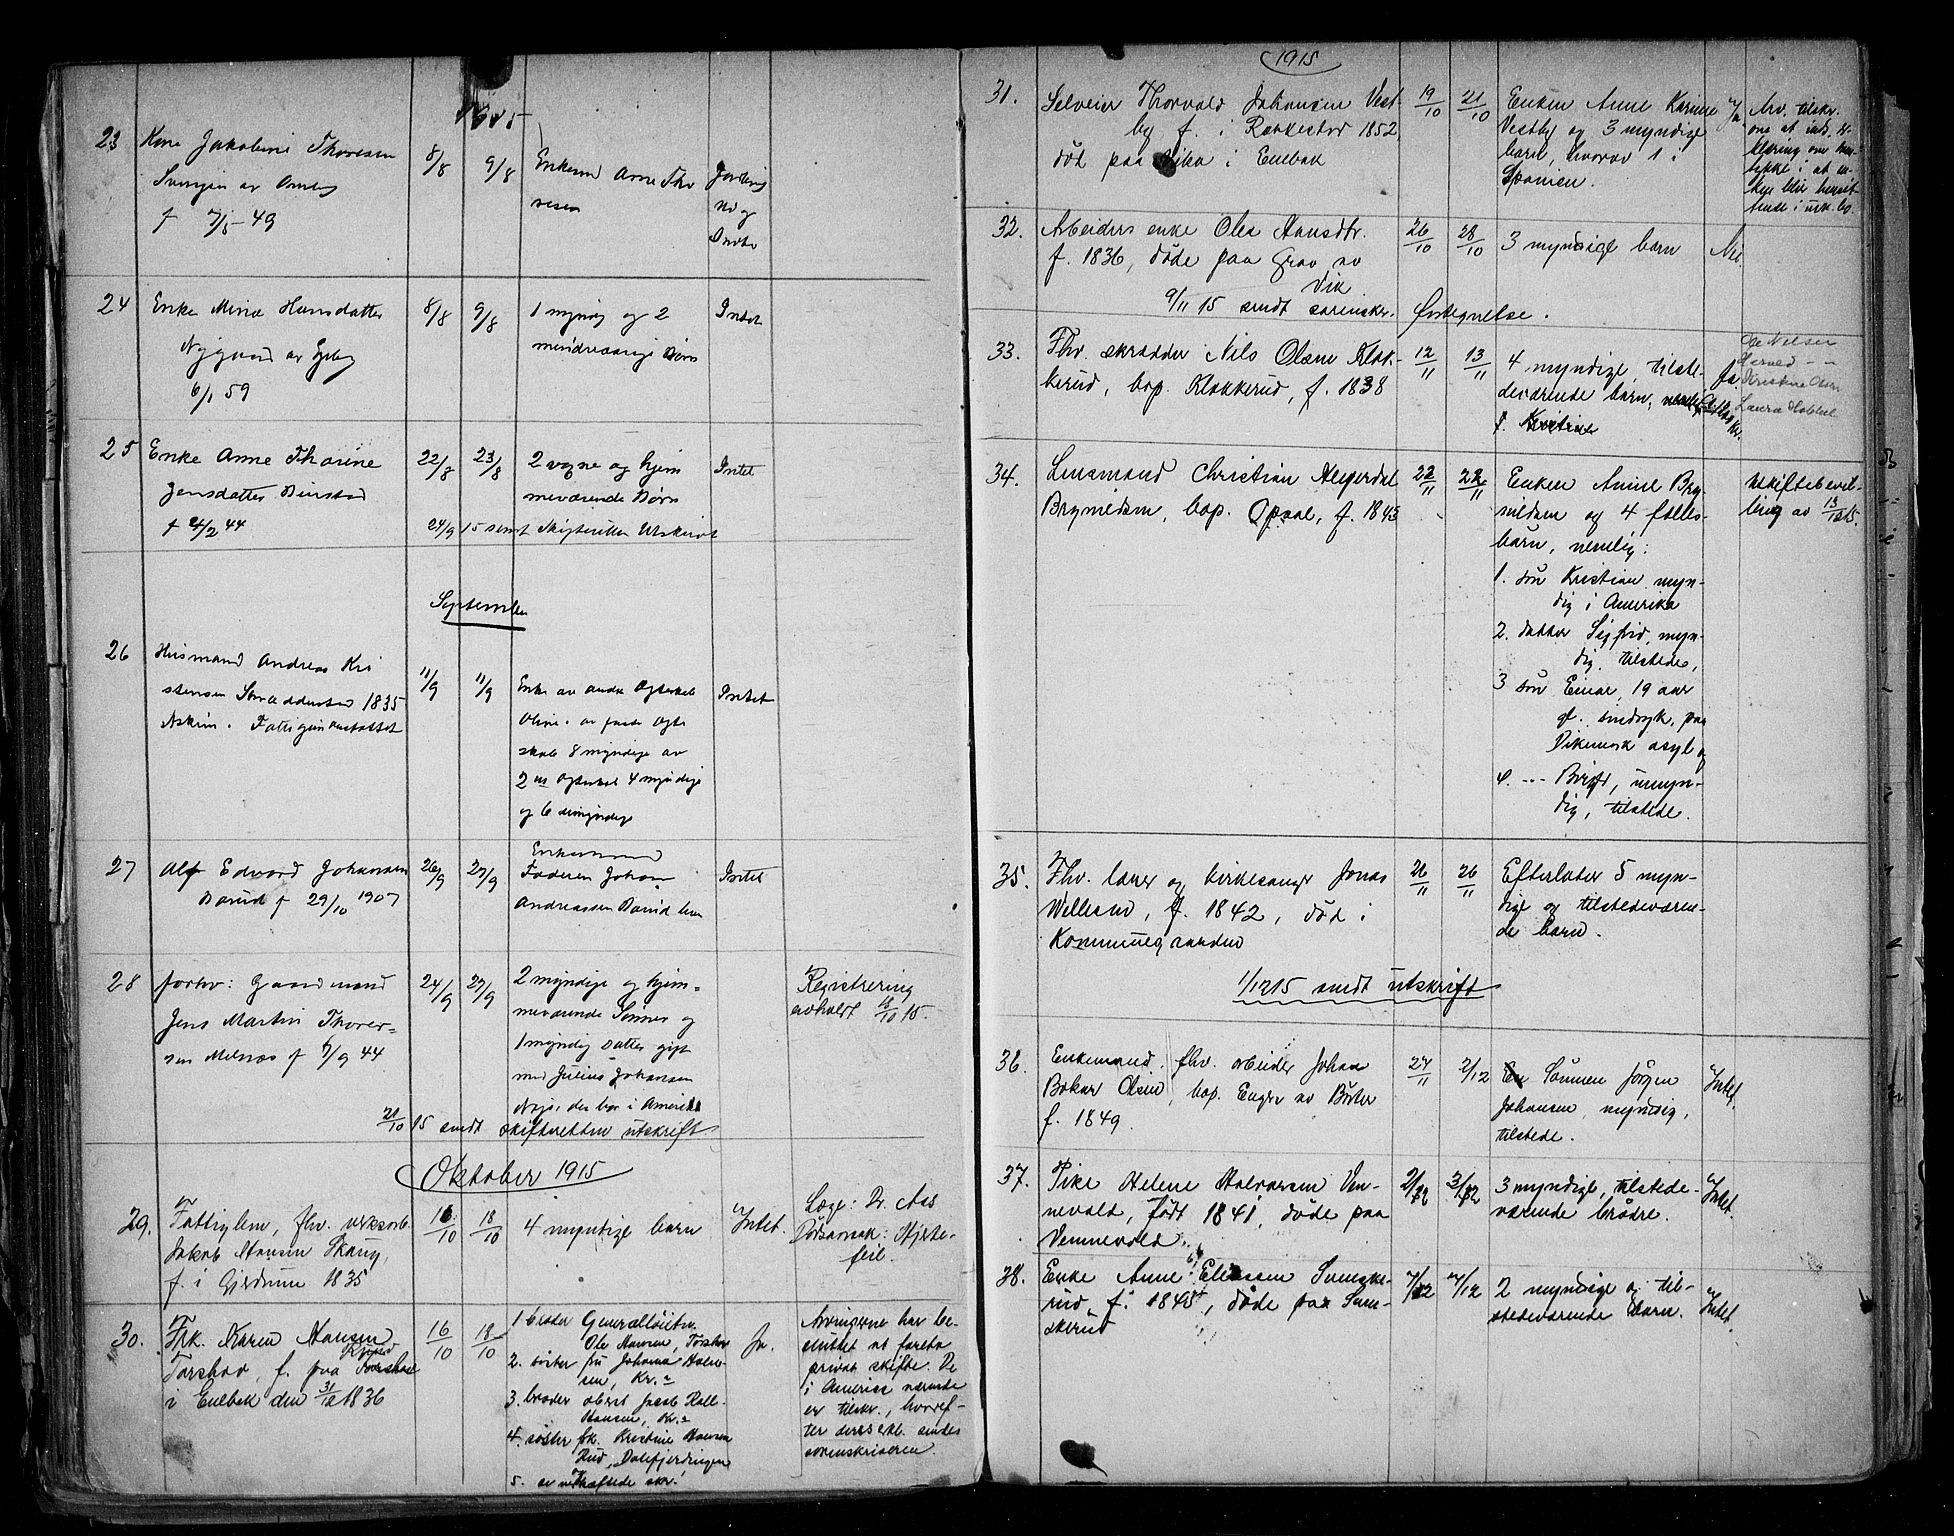 1915
23 Kone Jakobine Thoresen
f 7/5 - 49
8/8 9/8
Enkem. Anne Tho
resen
og
24 Enke Mina Hansdatter
Nygaard av
6/1 59
8/8 9/8
1 myndig og 2
mindreaarige Börn
Intet
25 Enke Anne Thorine
Jensdatter
f 4/2 44
22/8 23/8
2 vogne og hjem
meværende Börn
Intet
24/9 15 sendt Skifteretten Utskrift
September
26 Husmand Andreas Kri
stensen 1835
Askim.
11/9 11/9
Enke av andre Ogteskab
Oline. av förste ogte
skab 8 myndige av
2 det ogteskab 4 myndige
og 6 umyndige
Intet
27 Alf Edvard Johansen
Börud f 29/10 1907
26/9 27/9
Enkemand
Faderen Johan
Andreassen Börud
Intet
28 forhv: Gaardmand
Jens Martin Thorer-
sen Melnæs f 7/9 44
24/9 27/9
2 myndige og hjem-
meværende Sönner og
1 myndig datter gift
med Julius Johansen
der bor i Amerika
Registrering
avholdt 18/10 15.
21/10 15 sendt skifteretten utskrift
Oktober 1915
29. Fattiglem, fhv. verksarb.
Jakob Hansen Skaug,
f. i Gjerdrum 1835
16/10 18/10
4 myndige barn
Intet.
Læge: Dr. Aas
Dödsaarsak: Hjerte-
feil.
30. Frk. Karen Hansen
Torshov, f. paa Torshov
i Enebak den 31/12 1836
16/10 18/10
1 broder Generalløitn.
Ole Hansen, Torshov
2. söster fru Johanna Halvor-
sen, Kr.a
3. broder oberst Jacob Roll-
Hansen, Kr.a
4. söster frk. Kristine Hansen
Hud, Dalefjerdingen
5.
Ja.
Arvingerne har be-
sluttet at foreta
privat skifte. De
i Amerika værende
er tilskr., hvoref-
ter deres erkl. sendes
sorenskriveren.
1915
31. Selveier Thorvald Johansen Vest-
by f. i Rakkestad 1852,
död paa Vika i Enebak
19/10 21/10
Enken Anne Karine
Vestby og 3 myndige
barn, hvorav 1 i
Spanien.
Ja
Arv. tilskr.
om at ind. er-
klæring om sam-
tykke i at en-
ken blir besit-
tende i usk. bo
32. Arbeiders enke Olea Hansdtr.
f. 1836, döde paa Grav av
Vik
26/10 28/10
3 myndige barn
Nei.
9/11 15 sendt sorenskr.
33. Fhv. skrædder Nils Olsen Klok-
kerud, bop. Klokkerud, f. 1838
12/11 13/11
4 myndige, tilste-
deværende barn,
Ja
Ole Nelsen
Kristine Olsen
Laura
34. Lensmand Christian
bop. Opsal, f. 1843
22/11 22/11
Enken Anne Bry-
nildsen og 4 fælles-
barn, nemlig:
1. sön Kristian myn-
dig i Amerika
2. datter Sigfrid, myn-
dig, tilstede,
3 sön Einar, 19 aar
gl. sindsyk, paa
Dikemark asyl og
4. --- Birger, umyn-
dig, tilstede.
Uskiftebevil-
ling av 13/12 15.
35. Fhv. lærer og kirkesanger Jonas
f. 1842, död i
Kommunegaarden
26/11 26/11
Efterlater 5 myn-
dige og tilstedeværen-
de barn.
1/12 15 sendt utskrift
36. Enkemand, fhv. arbeider Johan
Olsen, bop. Enger av
f. 1849.
24/11 2/12
Sönnen Jörgen
Johansen, myndig,
tilstede.
Intet.
37. Pike Helene Halvorsen Ven-
nevold, födt 1841, döde paa
Vennevold.
2/12 3/12
3 myndige, tilstede-
værende brödre.
Intet.
38. Enke Anne Eliassen Svenske-
rud, f. 1845, döde paa Sven-
skerud
7/12 7/12
2 myndige og til-
stedeværende barn.
Intet.